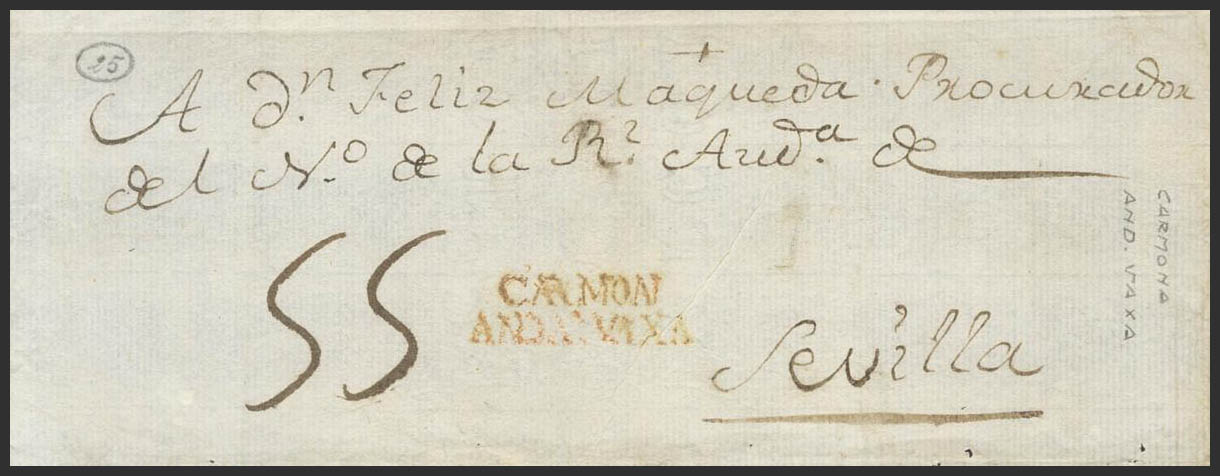 25
A Dn. Feliz Maqueda Procurador
del No. de la Rl. Auda. de
55
CARMON
ANDAL VAXA
Sevilla
CARMONA
AND. VAXA